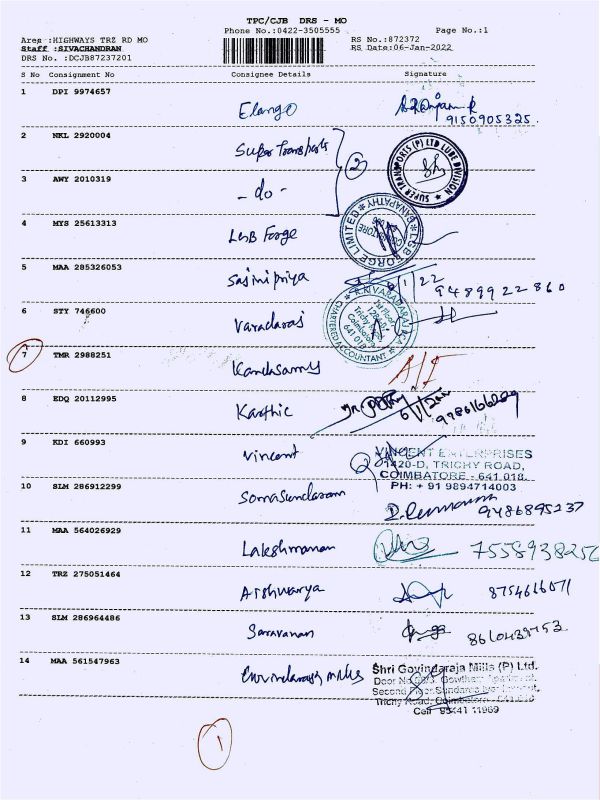 TPC/CJB DRS - MO
Phone No.:0422-3505555 Page No.:1
Area :HIGHWAYS TRZ RD MO RS No.:872372
Staff :SIVACHANDRAN RS Date:06-Jan-2022
DRS No. :DCJB87237201
S No Consignment No Consignee Details Signature
1 DPI 9974657 Elango
9150905325.
2 NKL 2920004 Super Transports 2
SUPER TRANSPORTS (P) LTD LUBE DIVISION
3 AWY 2010319 - do -
4 MYS 25613313 LGB Forge
LGB FORGE LIMITED GANAPATHY
5 MAA 285326053 Sasipriya
9489922860
6 STY 746600 Varadaraj
CHARTERED ACCOUNTANT
1st Floor
Trichy
Coimbatore
641 018
7 TMR 2988251 Kandasamy
8 EDQ 20112995 Karthic
9 KDI 660993 Vincent
VINCENT ENTERPRISES
1420-D, TRICHY ROAD,
COIMBATORE - 641 018.
PH: + 91 9894714003
10 SLM 286912299 Somasundaram
9486895237
11 MAA 564026929 Lakshmanan
12 TRZ 275051464 Aishwarya
8754616071
13 SLM 286964486 Saravanan
14 MAA 561547963
Shri Govindaraja Mills (P) Ltd.
Trichy Road, Coimbatore
Cell 95441 11969
1